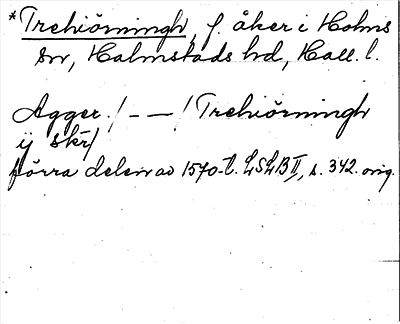 *Trehiörningh, f. åker i Holms
sn, Halmstads hd, Hall. l.
Agger / - — / Trehiörningh
ij skr/
förra delen av 1570-t. LSLB II, s. 342. orig.